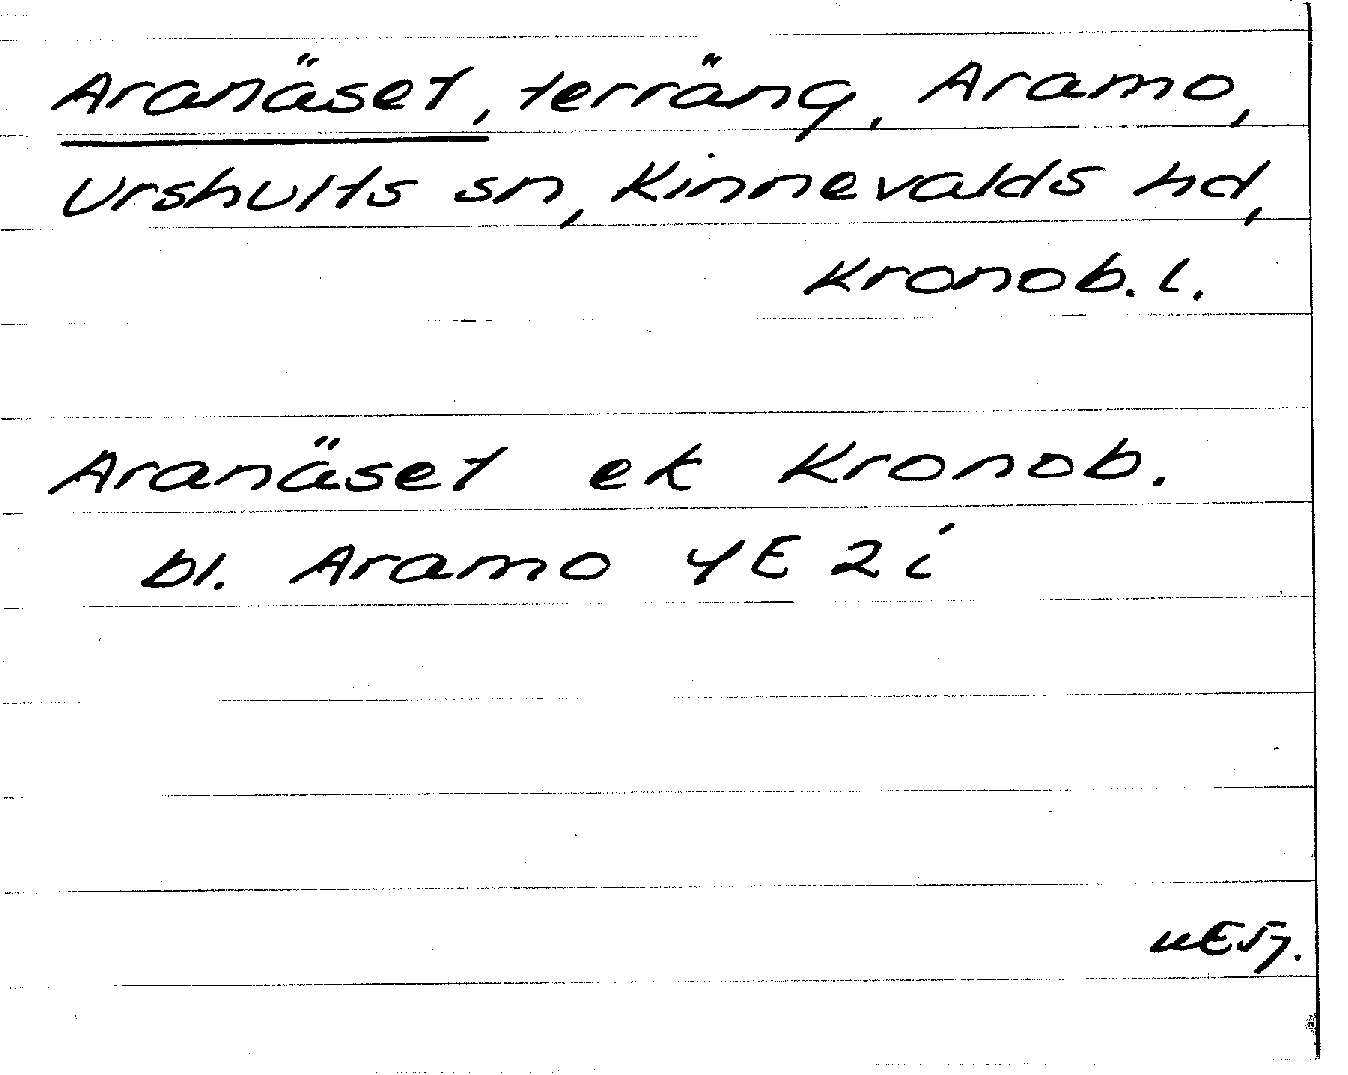 Aranäset, terräng, Aramo,
Urshults sn, Kinnevalds hd,
Kronob. l.
Aranäset ek Kronob.
bl. Aramo 4E 2i